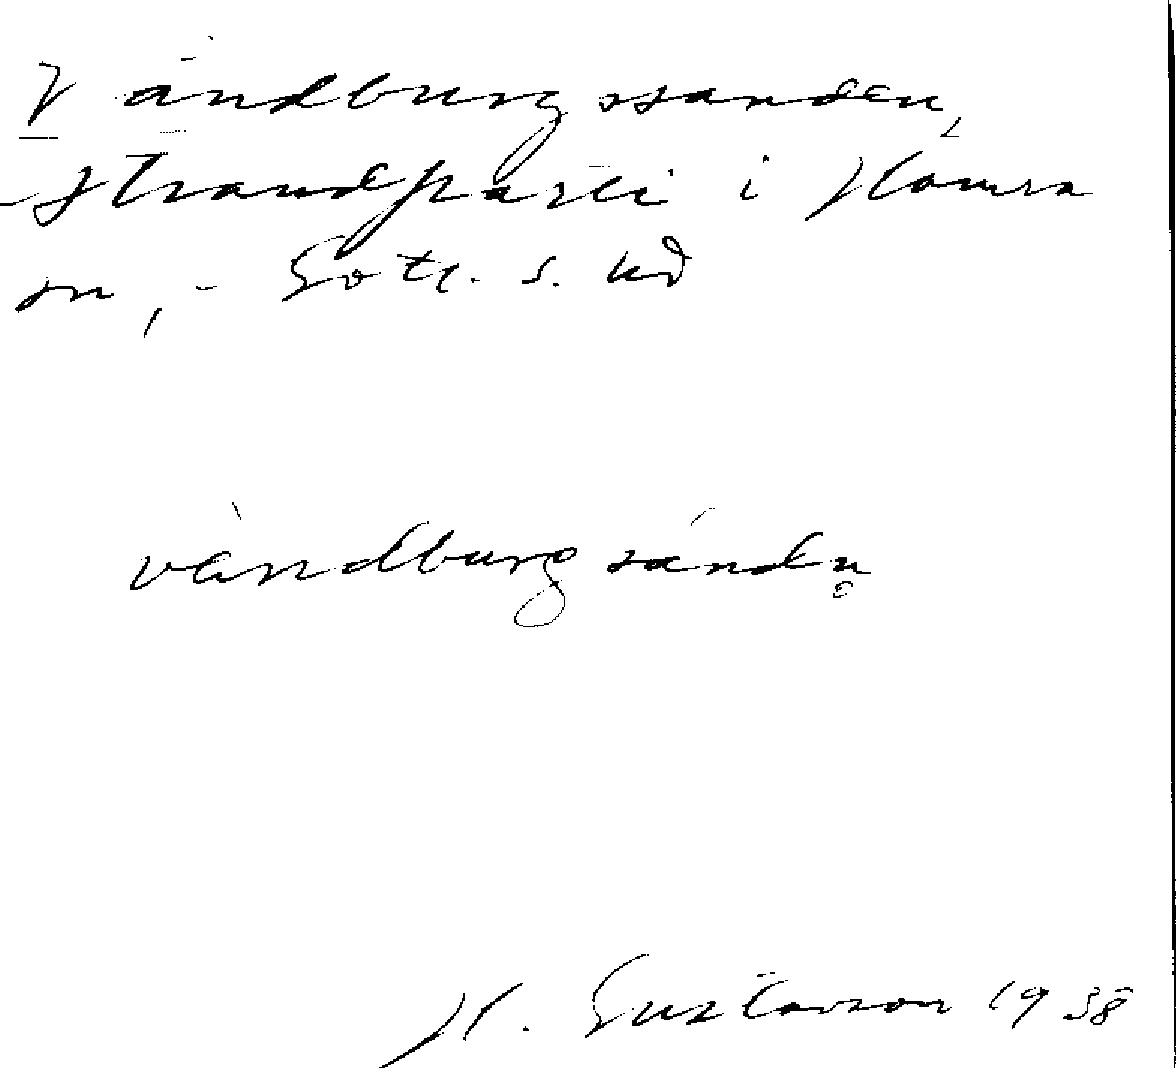 Vändburgssanden,
strandparti i Hamra
sn, - Gotl. s. hd
vàndburgsándn̥
H. Gustavson 1938